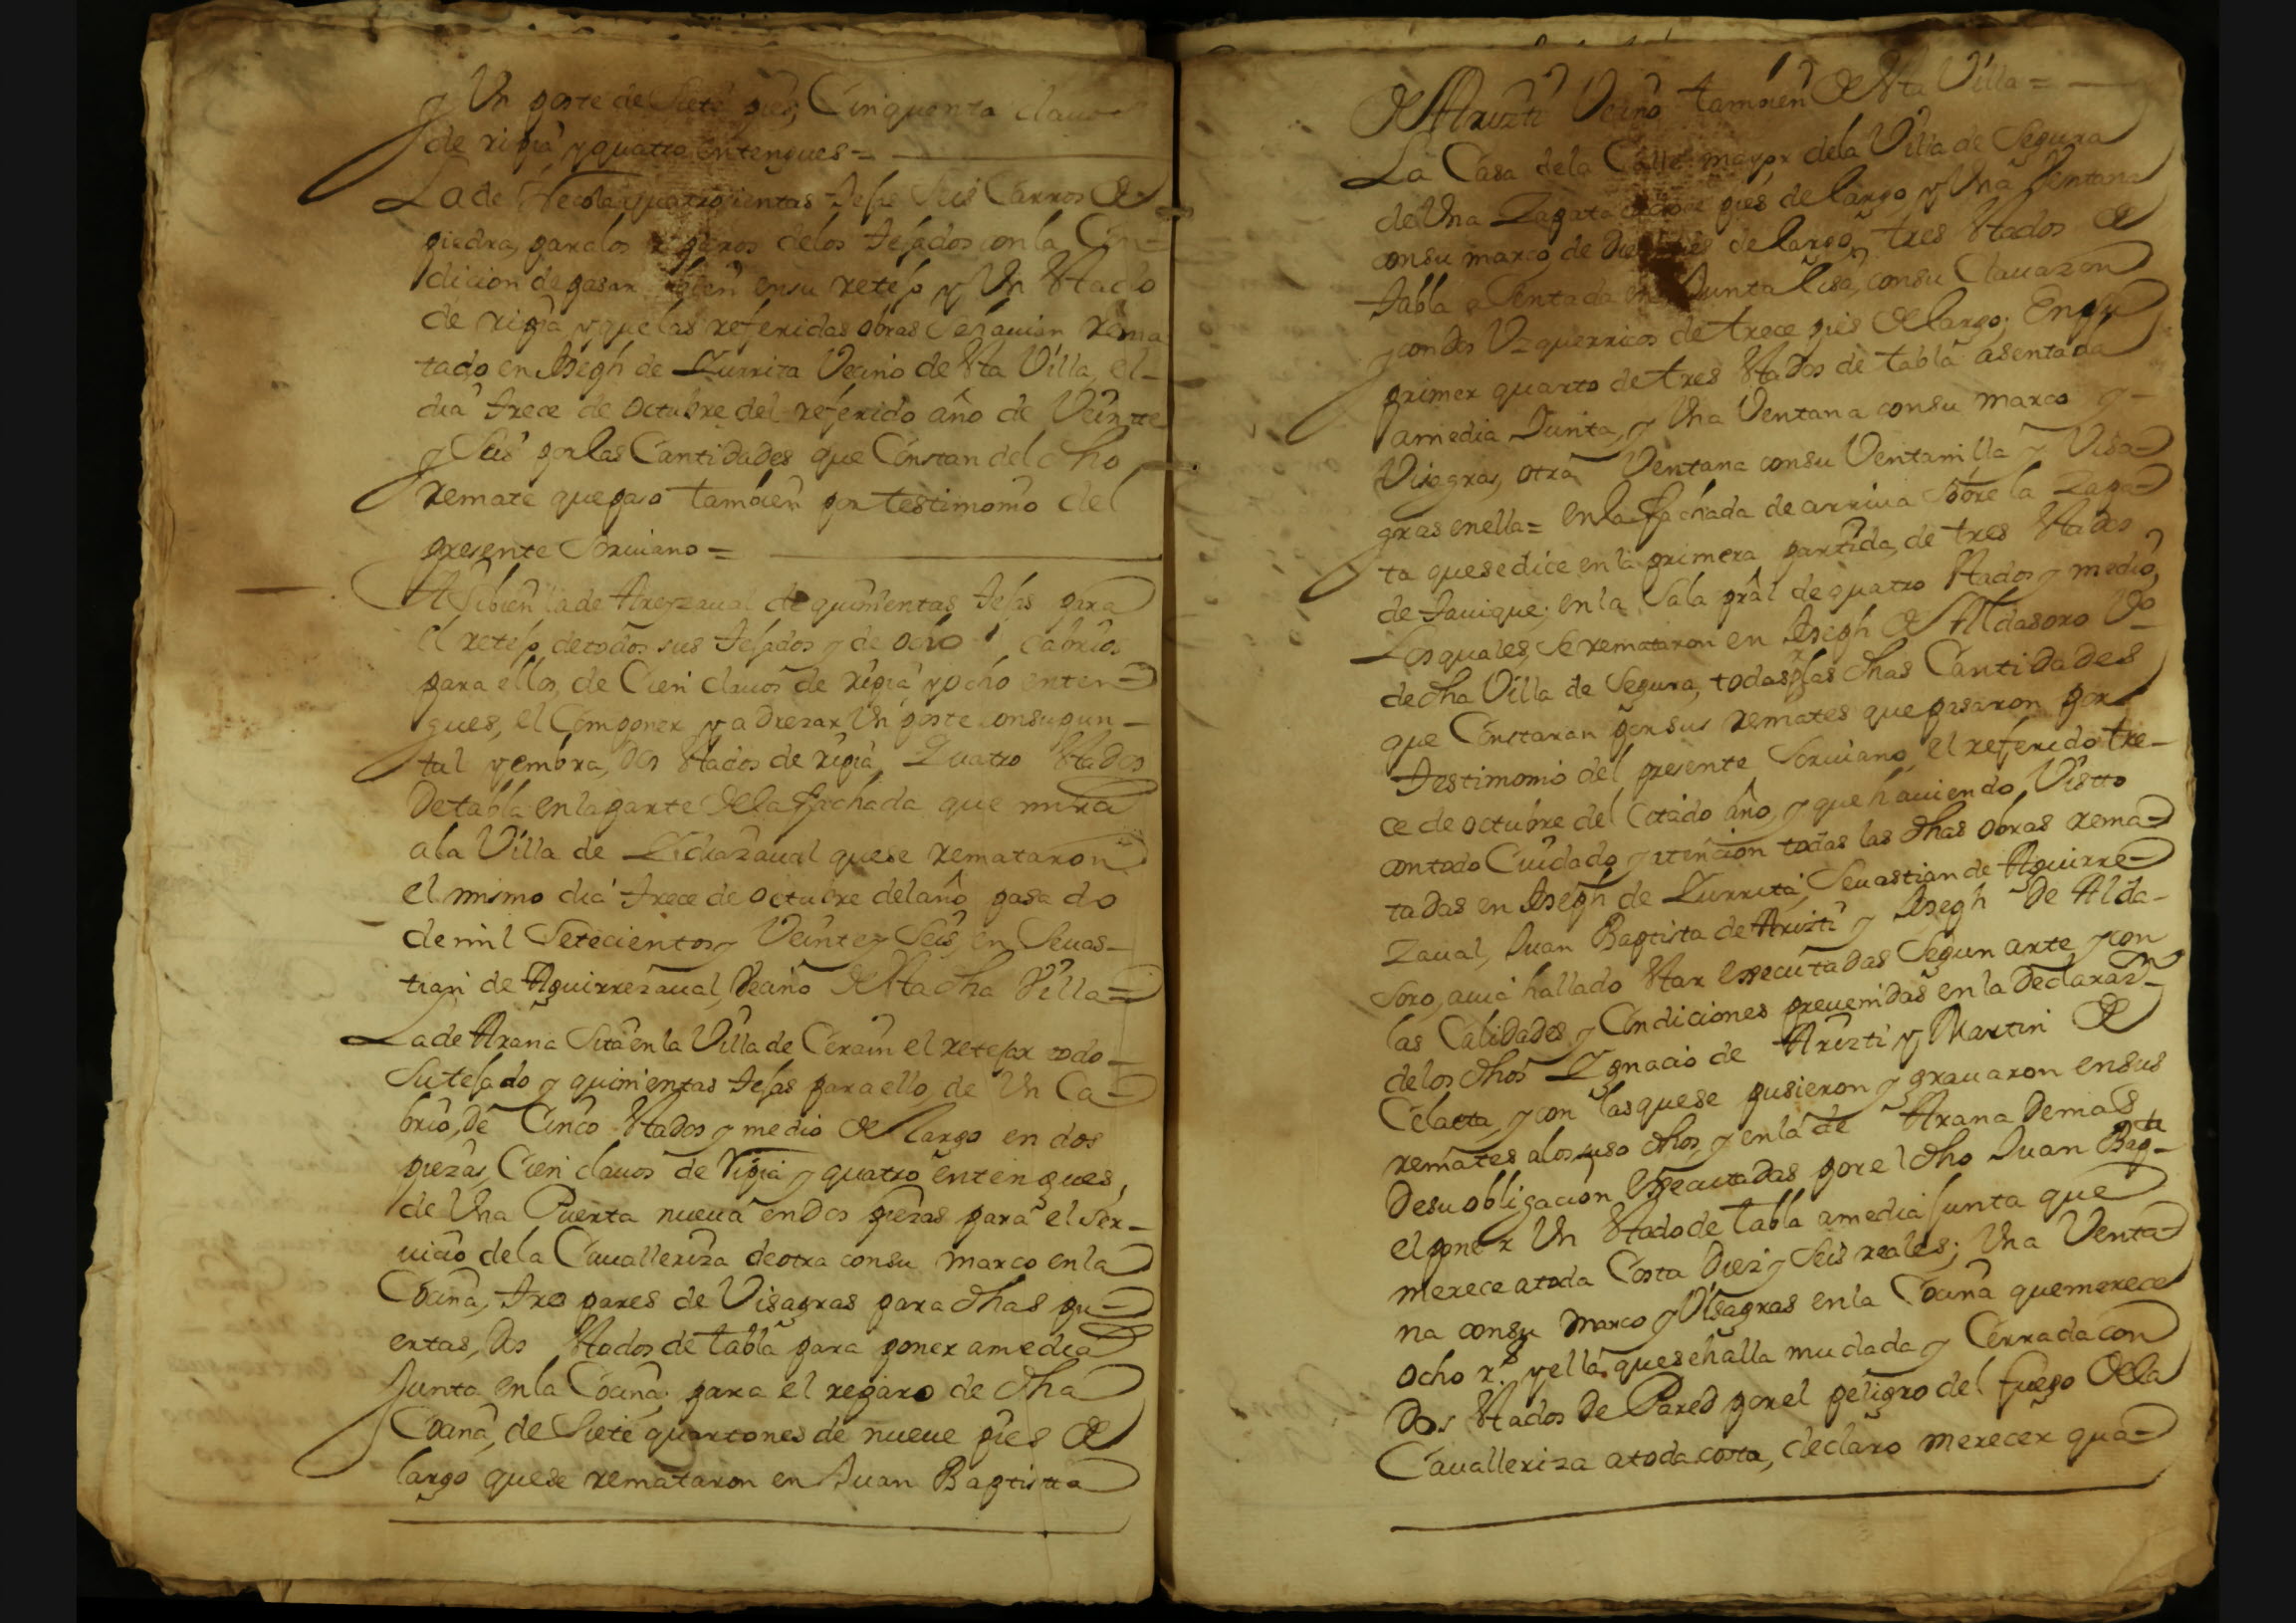 y Un poste de Siete pies, Cinquenta clauos
de ripia y quatro entengues =
La de quatrocientas tejas Seis Carros de
piedra, para los reparos delos tejados con la Con-
dicion de pasar bien en su retejo y Un estado
de ripia y que las referidas obras Se hauian rema
tado en Joseph de Zurrita Vecino de esta Villa, el
dia trece de octubre del referido año de Veintte
y Seis por las Cantidades que Constan del dho
remate que paso tamvien por testimonio del
presente Scriuano =
Assibien la de Areyzaual de quinientas tejas para
el retejo, de todos sus tejados y de ocho cabrios
para ellos, de Cien clauos de ripia y ocho enten-
gues, el Componer y adrezar Un poste con su pun-
tal y embra, dos estados de ripia, Quatro estados
De tabla en la parte de la fachada que mira
ala Villa de Ydiazaual que se remataron
el mismo dia trece de octubre del año pasado
de mil Setecientos y Veinte y Seis, en Seuas-
tian de Aguirrezaual, Vecino de esta dha Villa =
La de Arana Sita en la Villa de Cerain el retejar todo
Su tejado y quinientas tejas para ello, de Un Ca-
brio, de Cinco estados y medio de largo en dos
piezas, Cien clauos de ripia y quatro entengues,
de Una Puerta nueua en Dos piezas para el Ser-
uicio dela Cavalleriza de otra con su marco en la
Cocina, tres pares de Visagras para dhas pu-
ertas, dos estados de tabla para poner a media
Junta en la Cocina; para el reparo de dha
Cocina, de Siete quartones de nueue pies de
largo que se remataron en Juan Baptista
de Aruzti Vecino tamvien de esta Villa =
La Casa dela Calle mayor dela Villa de Segura
de Una Zapata de pies de largo, y Una Ventana
con su marco de de largo, tres estados de
tabla aSentada en Junta lisa, con su Clauazon
y con dos Uzquerricos de trece pies de largo; En su
primer quarto de tres estados de tabla asentada
a media Junta, y Una Ventana con su marco y
Visagras, otra Ventana con su Ventanilla y Visa-
gras en ella = en la fachada de arriua Sobre la Zapa-
ta que se dice en la primera partida, de tres estados
de tauique; en la Sala prâl de quatro estados y medio,
Los quales, Se remataron en Joseph de Aldasoro Vº
de dha Villa de Segura, todas por las dhas Cantidades
que Constaran por sus remates que pasaron por
testimonio del presente Scriuano, el referido tre-
ce de octubre del Citado año, y que hauiendo Visto
con todo Cuidado y atencion todas las dhas obras rema-
tadas en Joseph de Zurrita, Seuastian de Aguirre-
zaual, Juan Baptista de Aruzti y Joseph De Alda-
soro, auia hallado estar executadas Segun arte, y con
las Calidades y Condiciones preuenidas en la Declaraz.on
delos dhos Ygnacio de Aruzti y Martin de
Celaeta, y con las que se pusieron y grauaron en sus
remates alos suso dhos, y en la de Arana Demas
De su obligacion executadas por el dho Juan Bap.ta
el poner Un estado de tabla a media Junta que
merece a toda Costa Diez y Seis reales; Una Venta-
na con su marco y Visagras en la Cocina que merece
ocho r.s y ella que se halla mudada y Cerrada con
Dos estados De Pared por el peligro del fuego dela
Cavalleriza a toda costa, declaro merecer qua-